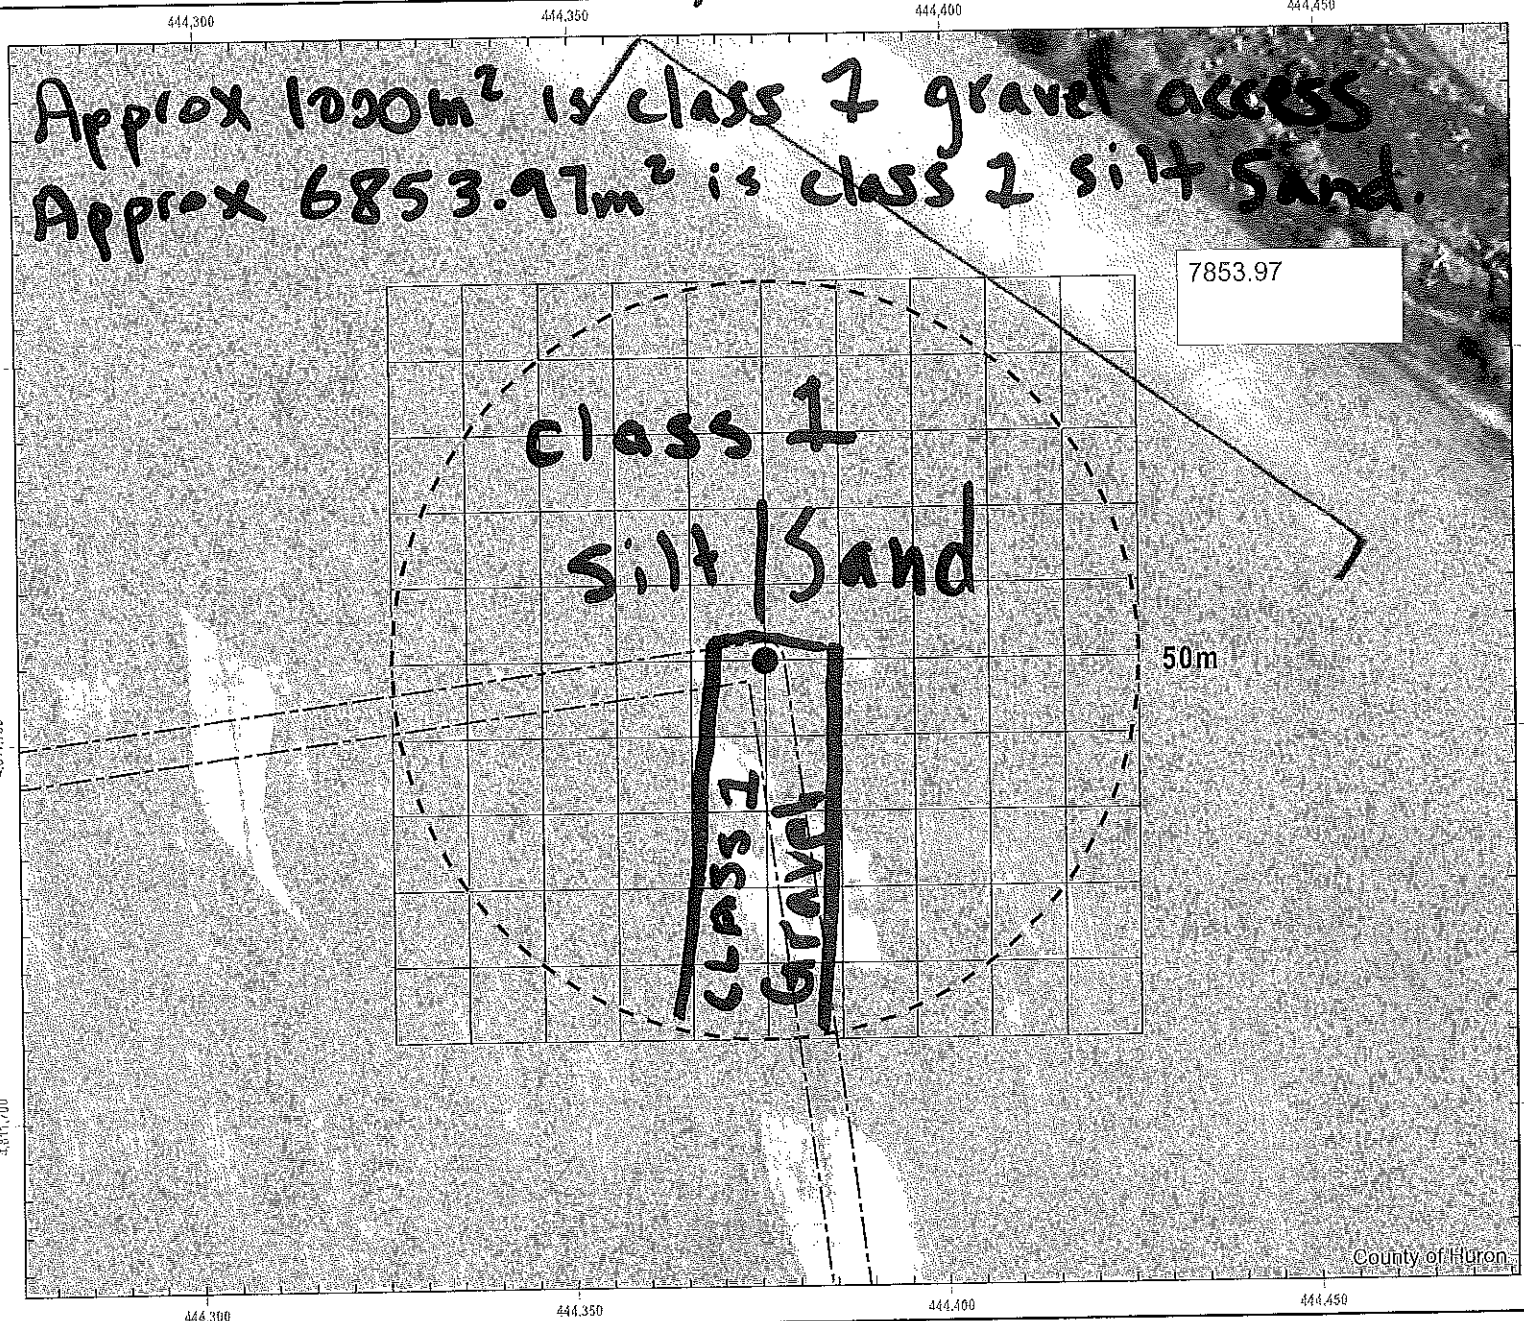 444,300 444,350 444,400 444,450
Approx 1000m² is class 1 gravel access
Approx 6853.97m² is class 1 silt Sand.
7853.97
class 1
silt/Sand
50m
CLASS 1
Gravel
County of Huron
444,300 444,350 444,400 444,450